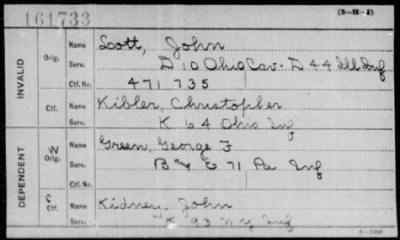 161733
(3-H-4)
INVALID
Orig. Name Scott, John
Serv. D 10 Ohio Cav. D 44 Ill Inf
Ctf. No. 471 735
Ctf. Name Kibler, Christopher
Serv. K 64 Ohio Inf
DEPENDENT
W Orig. Name Green, George F
Serv. B & C 71 Pa Inf
Ctf. No.
C Ctf. Name Kidney, John
Serv. K 93 N Y Inf